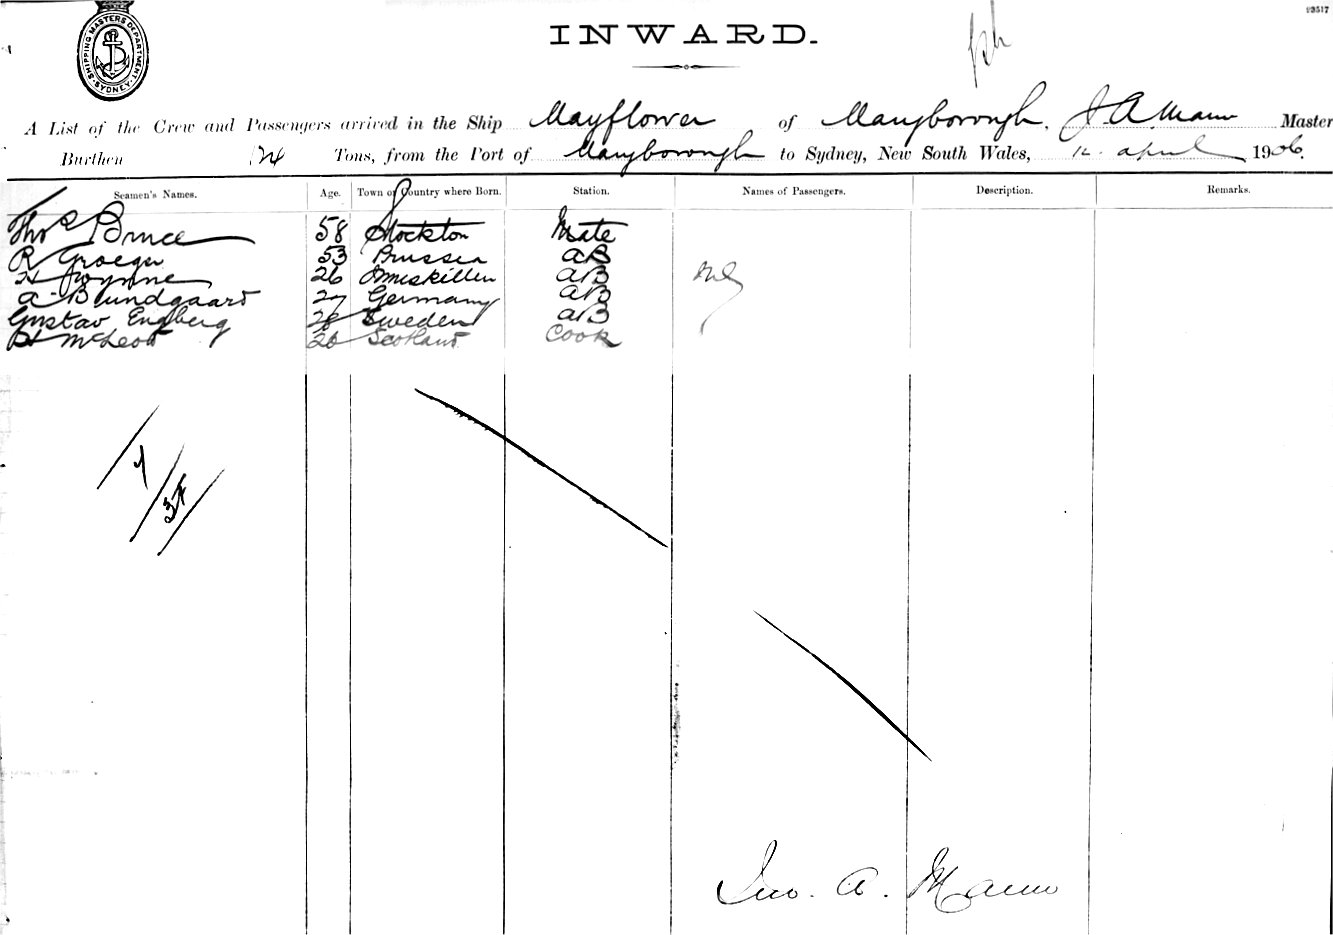 93517
SHIPPING MASTERS DEPARTMENT SYDNEY
INWARD.
A List of the Crew and Passengers arrived in the Ship Mayflower of Maryborough, J. A. Mann Master
Burthen 124 Tons, from the Port of Maryborough to Sydney, New South Wales, 12 april 1906.
Seamen's Names. Age. Town or Country where Born. Station. Names of Passengers. Description. Remarks.
Thos Bruce 58 Stockton Mate
R Groeger 53 Prussia AB
H Gwynne 26 Inniskillen AB
A Blundgaard 27 Germany AB
Gustav Engberg 28 Sweden AB
H McLeod 26 Scotland Cook
Nil
7
37
Jno. A. Mann